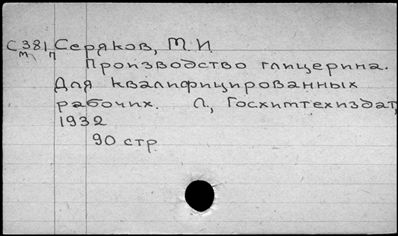 С381 Серяков, М. И.
м\ п
Производство глицерина.
Для квалифицированных
рабочих. Л, Госхимтехиздат,
1932
90 стр